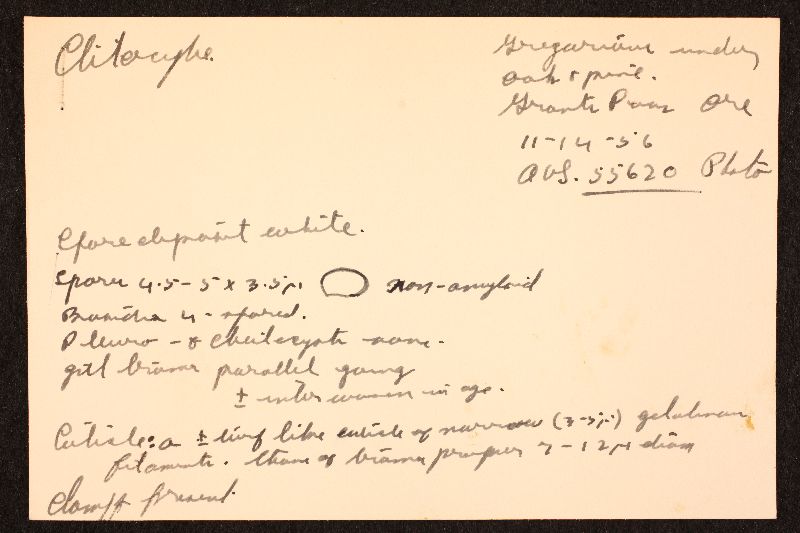 Clitocybe.
Gregarious under
oak & pine.
Grants Pass Ore
11-14-56
AHS. 55620 Photo
Spore deposit white.
Spores 4.5-5 x 3.5µ non-amyloid
Basidia 4-spored.
Pleuro - & cheilocystidia none.
gill trama parallel going
± interwoven in age.
Cuticle: a ± turf like cuticle of narrow (3-5µ) gelatinous
filaments. those of trama proper 7-12µ diam
Clamps present.